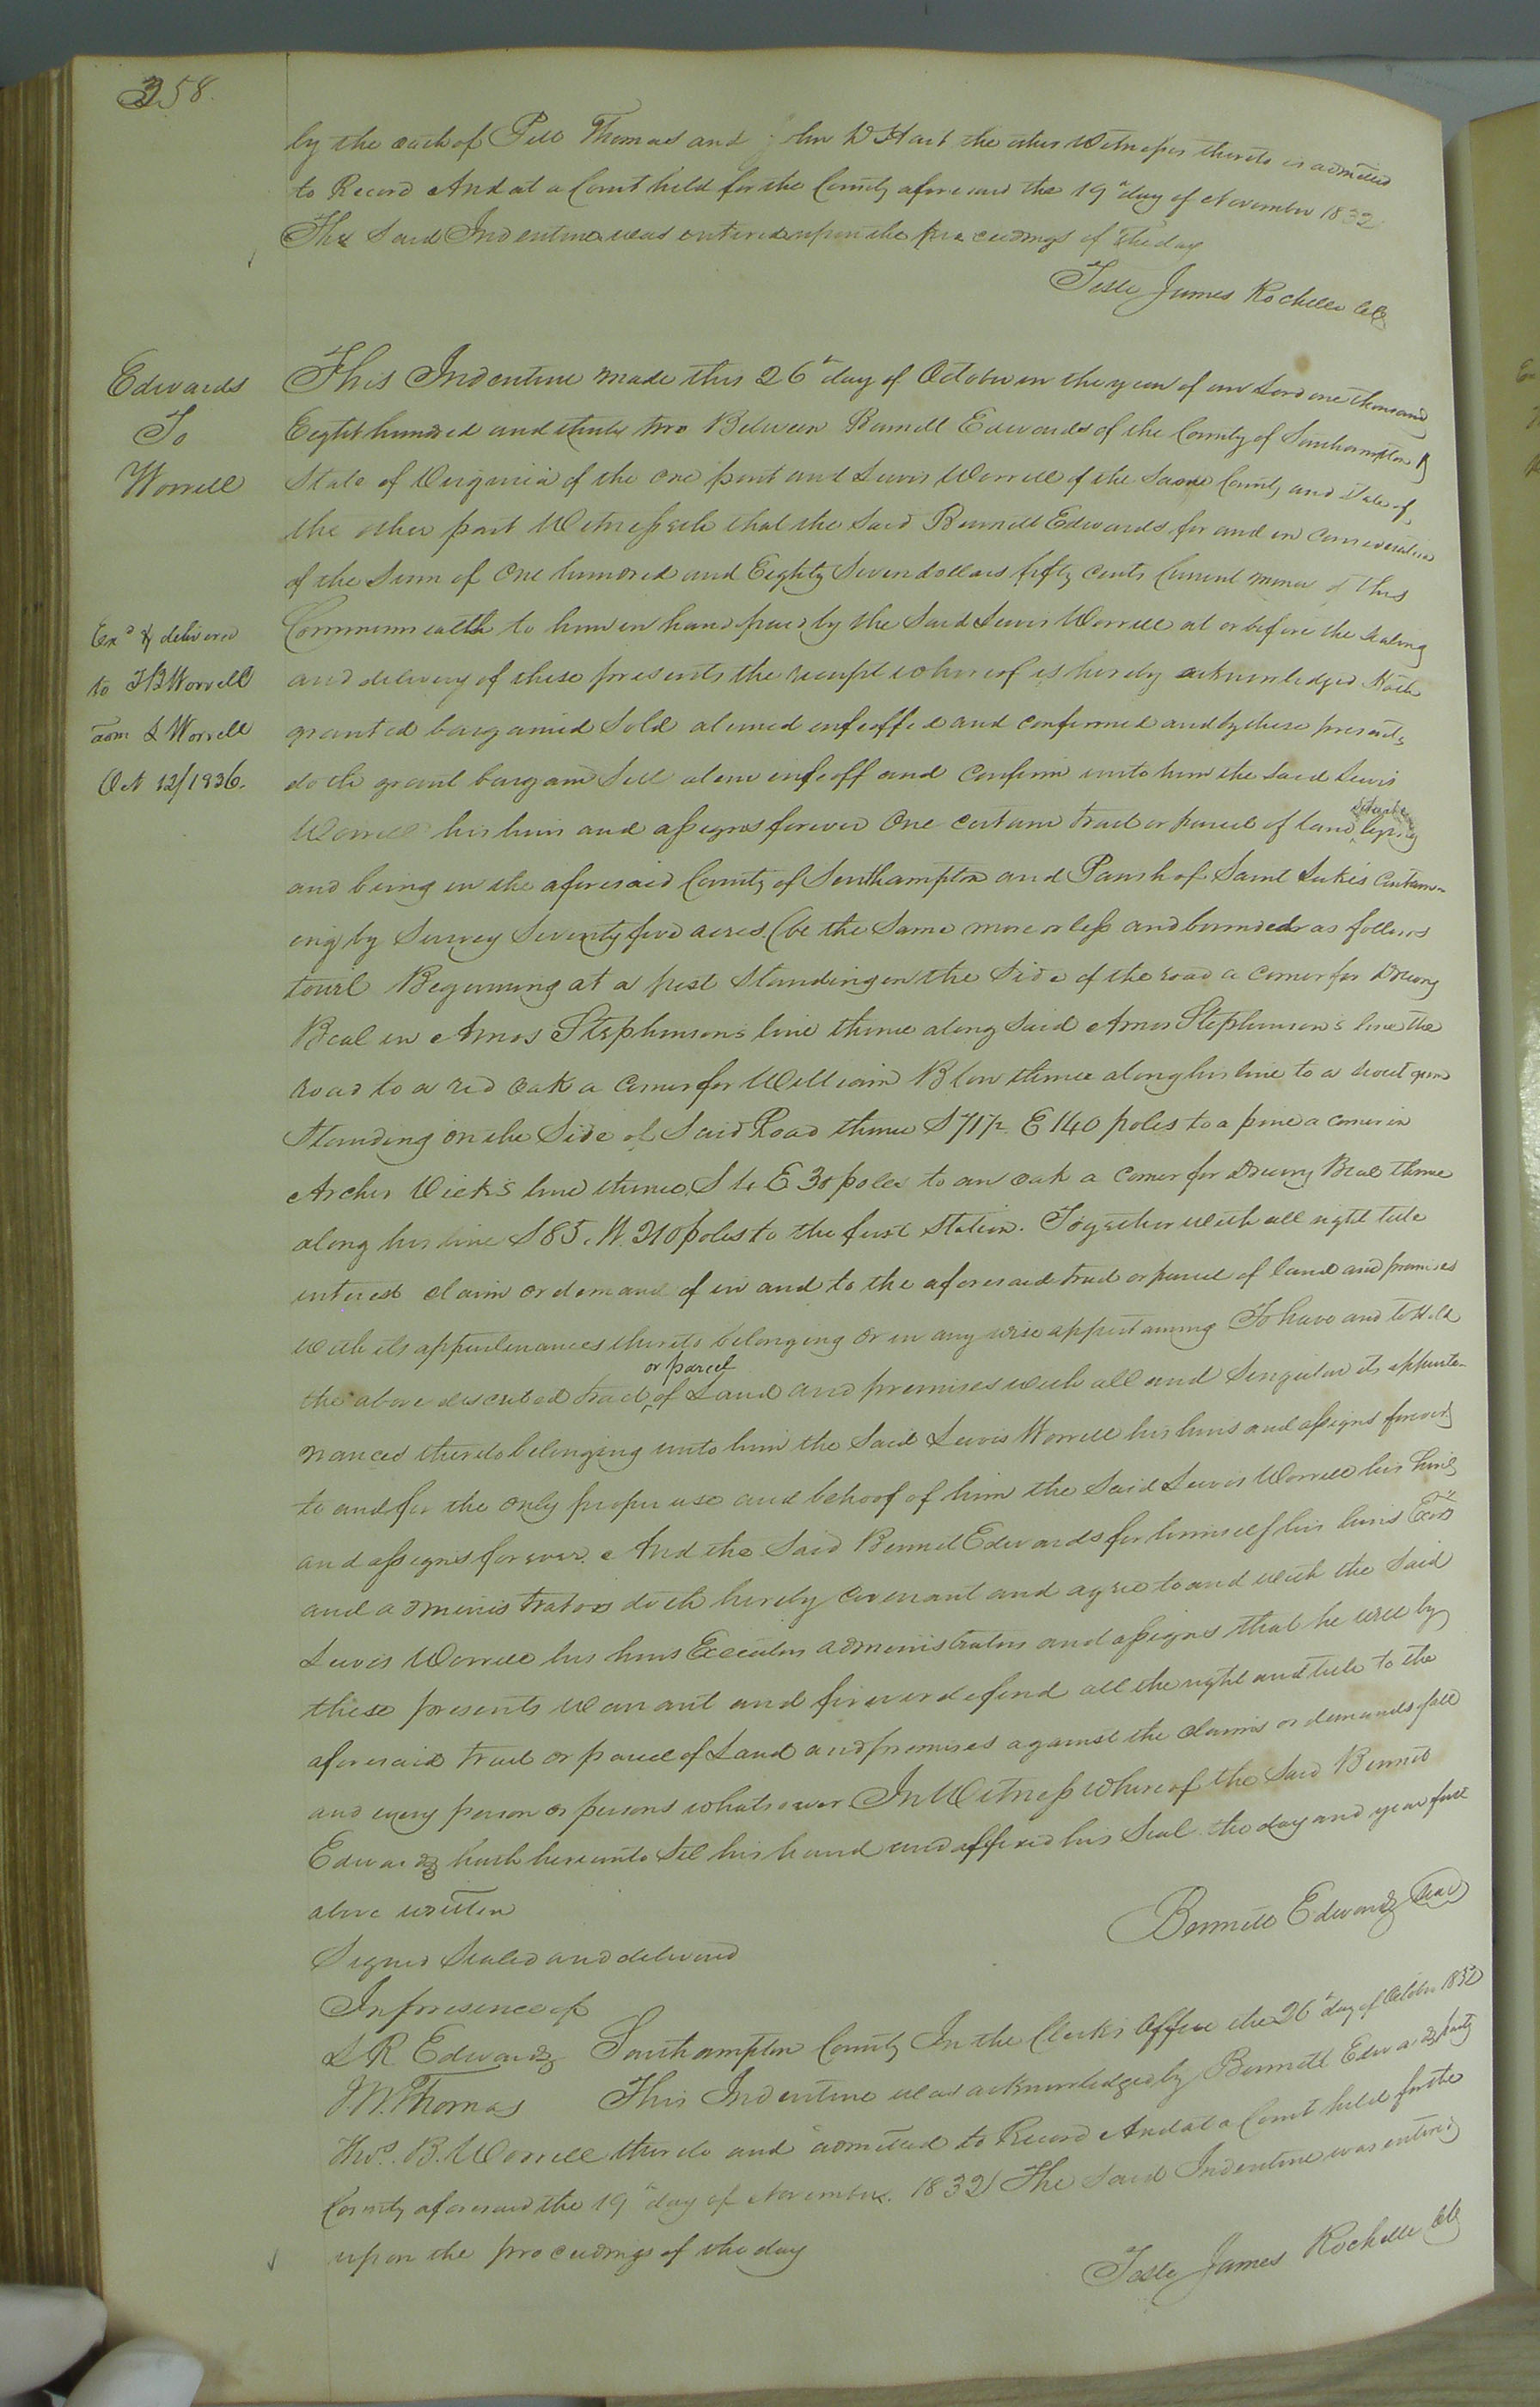 358.
by the oath of Peter Thomas and John W Hart the other Witnesses thereto is admitted
to Record And at a Court held for the County aforesaid the 19th day of November 1832
The Said Indenture was entered upon the proceedings of the day
Teste James Rochelle ClC
Edwards
To
Worrell
Exd & delivered
to T B Worrell
adm L Worrell
Oct 12/1836.
This Indenture made this 26th day of October in the year of our Lord one thousand
Eight hundred and thirty two Between Bennett Edwards of the County of Southampton &
State of Virginia of the one part and Lewis Worrell of the Same County and State of
the other part Witnesseth that the Said Bennett Edwards for and in consideration
of the Sum of One hundred and Eighty Seven dollars fifty cents Current money of this
Commonwealth to him in hand paid by the Said Lewis Worrell at or before the Sealing
and delivery of these presents the receipt whereof is hereby acknowledged Hath
granted bargained Sold aliened enfeoffed and confirmed and by these presents
doth grant bargain Sell alien enfeoff and Confirm unto him the Said Lewis
Worrell his heirs and assigns forever One certain tract or parcel of land situate lying
and being in the aforesaid County of Southampton and Parish of Saint Luke's Contain-
ing by Survey Seventy five acres (be the Same more or less and bounded as follows
towit Beginning at a post Standing on the Side of the road a corner for Drewry
Beal in Amos Stephenson's line thence along Said Amos Stephenson's line the
road to a red oak a corner for William Blow thence along his line to a sweet gum
Standing on the Side of Said Road thence S 71½ E 140 poles to a pine a corner in
Archer Vick's line thence S 4 E 30 poles to an oak a corner for Drewry Beal thence
along his line S 85. W. 210 poles to the first Station. Together with all right title
interest claim or demand of in and to the aforesaid tract or parcel of land and premises
with its appurtenances thereto belonging or in any wise appertaining To have and to Hold
the above described tract or parcel of Land and premises with all and Singular its appurte-
nances thereto belonging unto him the Said Lewis Worrell his heirs and assigns forever
to and for the only proper use and behoof of him the Said Lewis Worrell his heirs
and assigns forever. And the Said Bennett Edwards for himself his heirs Exors
and administrators doth hereby covenant and agree to and with the Said
Lewis Worrell his heirs Executors administrators and assigns that he will by
these presents warrant and forever defend all the right and title to the
aforesaid tract or parcel of Land and premises against the claims or demands of all
and every person or persons whatsoever In Witness whereof the Said Bennett
Edwards hath hereunto Set his hand and affixed his Seal the day and year first
above written
Bennett Edwards Seal
Signed Sealed and delivered
In presence of
L R Edwards Southampton County In the Clerk's Office the 26th day of October 1832
J.W. Thomas This Indenture was acknowledged by Bennett Edwards party
Thos. B. Worrell thereto and admitted to Record And at a Court held for the
County aforesaid the 19th day of November. 1832 The Said Indenture was entered
upon the proceedings of the day
Teste James Rochelle ClC